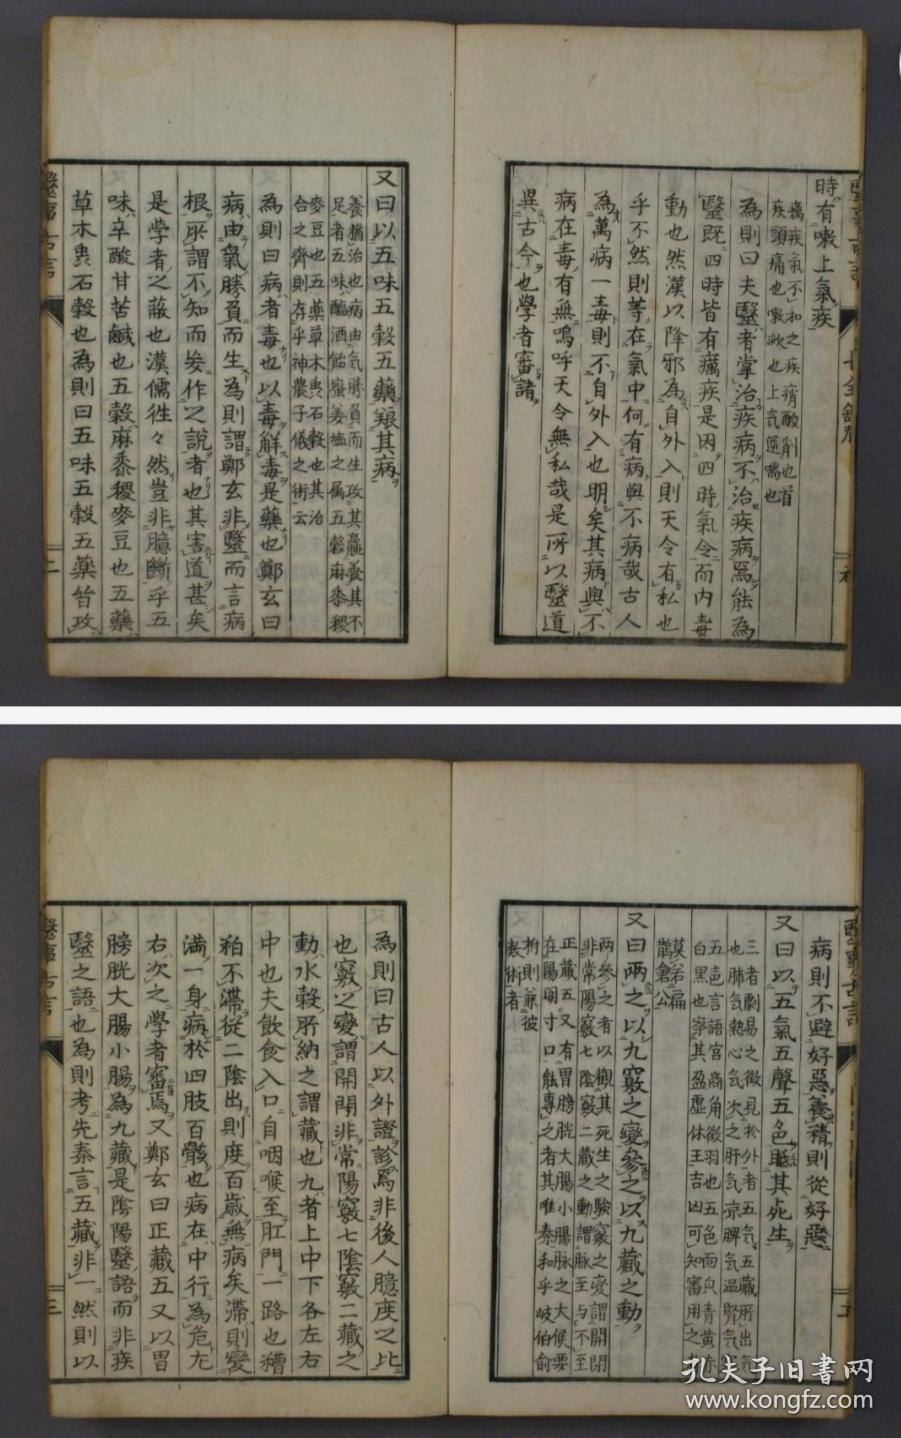 時有嗽上氣疾
癘疾氣不和之疾痟酸削也首
疾頭痛也嗽欬也上氣逆喘也
為則曰夫毉者掌治疾病不治疾病焉能為
毉既四時皆有癘疾是因四時氣令而内毒
動也然漢以降邪為自外入則天令有私也
乎不然則等在氣中何有病與不病哉古人
為萬病一毒則不自外入也明矣其病與不
病在毒有無嗚呼天令無私哉是所以毉道
異古今也學者審諸
又曰以五味五穀五藥養其病
養猶治也病由氣勝負而生攻其羸養其不
足者五味醯酒飴蜜姜塩之属五穀麻黍稷
麥豆也五藥草木虫石穀也其治
合之齊則存乎神農子儀之術云
為則曰病者毒也以毒解毒是藥也鄭玄曰
病由氣勝負而生為則謂鄭玄非毉而言病
根所謂不知而妄作之說者也其害道甚矣
是學者之蔽也漢儒徃々然豈非臆斷乎五
味辛酸甘苦鹹也五穀麻黍稷麥豆也五藥
草木虫石穀也為則曰五味五穀五藥皆攻
二
病則不避好惡養精則從好惡
又曰以五氣五聲五色眡其死生
三者劇易之徴見於外者五氣五藏所出氣
也肺氣熱心氣次之肝氣凉脾氣温腎氣寒
五色言語宮商角徴羽也五色面皃青黄赤
白黒也察其盈虚休王吉凶可知審用之者
莫若扁
鵲倉公
又曰兩之以九竅之變參之以九藏之動
兩參之者以觀其死生之驗竅之変謂開閉
非常陽竅七陰竅二藏之動謂脉至与不至
正藏五又有胃膀胱大腸小腸脉之大候要
在陽明寸口能專之者其唯秦和乎岐伯俞
柎則兼彼
数術者
為則曰古人以外證診焉非後人臆度之比
也竅之變謂開閉非常陽竅七陰竅二藏之
動水穀所納之謂藏也九者上中下各左右
中也夫飲食入口自咽喉至肛門一路也糟
粕不滯従二陰出則度百歳無病矣滯則變
満一身病於四肢百骸也病在中行為危左
右次之學者審焉又鄭玄曰正藏五又以胃
膀胱大腸小腸為九藏是陰陽毉語而非疾
毉之語也為則考先秦言五藏非一然則以
三
孔夫子旧书网
www.kongfz.com